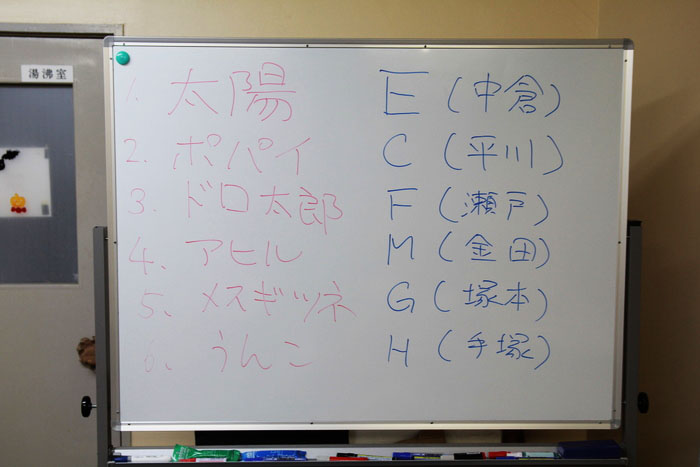 湯沸室
1. 太陽 E (中倉)
2. ポパイ C (平川)
3. ドロ太郎 F (瀬戸)
4. アヒル M (金田)
5. メスギツネ G (塚本)
6. うんこ H (手塚)